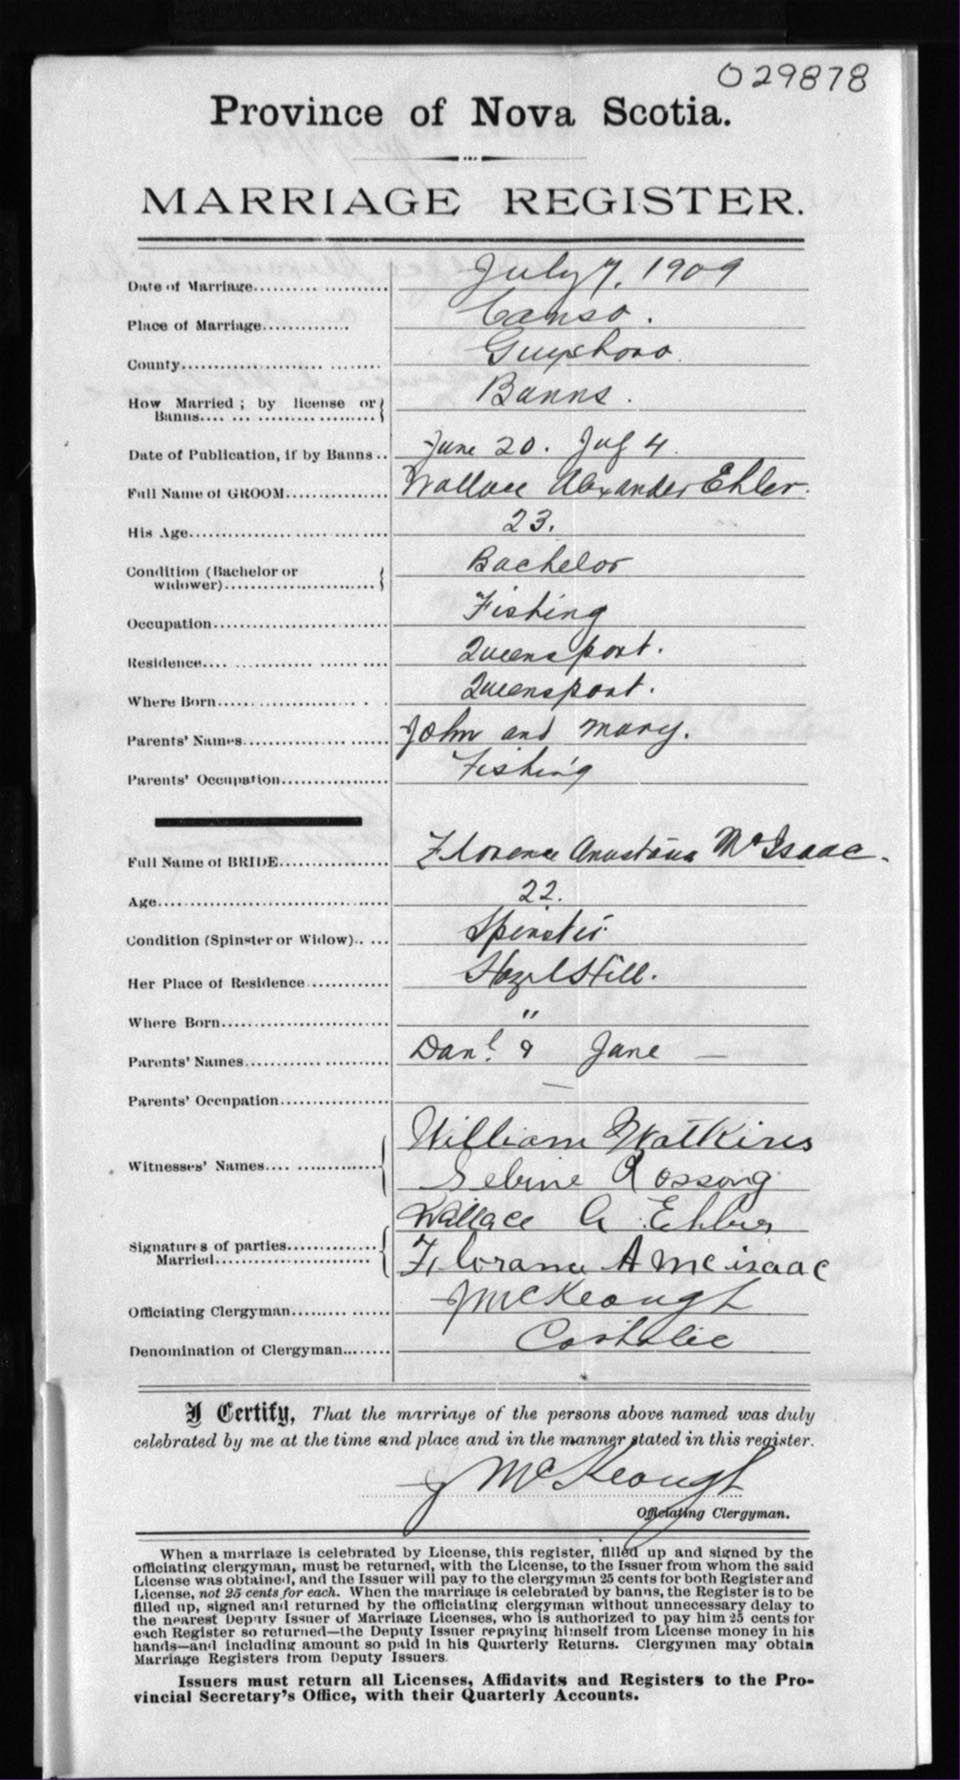 029878
Province of Nova Scotia.
MARRIAGE REGISTER.
Date of Marriage July 7, 1909
Place of Marriage Canso.
County Guysboro
How Married; by license or Banns Banns.
Date of Publication, if by Banns June 20. July 4.
Full Name of GROOM Wallace Alexander Ehler.
His Age 23.
Condition (Bachelor or widower) Bachelor
Occupation Fishing
Residence Queensport.
Where Born Queensport.
Parents' Names John and Mary.
Parents' Occupation Fishing
Full Name of BRIDE Florence McIsaac.
Age 22.
Condition (Spinster or Widow) Spinster
Her Place of Residence Hazel Hill.
Where Born "
Parents' Names Danl & Jane —
Parents' Occupation —
Witnesses' Names William Watkins
Sebine
Signatures of parties Married Wallace A Ehler
A McIsaac
Officiating Clergyman J McKeough
Denomination of Clergyman Catholic
I Certify, That the marriage of the persons above named was duly
celebrated by me at the time and place and in the manner stated in this register.
J McKeough
Officiating Clergyman.
When a marriage is celebrated by License, this register, filled up and signed by the
officiating clergyman, must be returned, with the License, to the Issuer from whom the said
License was obtained, and the Issuer will pay to the clergyman 25 cents for both Register and
License, not 25 cents for each. When the marriage is celebrated by banns, the Register is to be
filled up, signed and returned by the officiating clergyman without unnecessary delay to
the nearest Deputy Issuer of Marriage Licenses, who is authorized to pay him 25 cents for
each Register so returned—the Deputy Issuer repaying himself from License money in his
hands—and including amount so paid in his Quarterly Returns. Clergymen may obtain
Marriage Registers from Deputy Issuers.
Issuers must return all Licenses, Affidavits and Registers to the Pro-
vincial Secretary's Office, with their Quarterly Accounts.